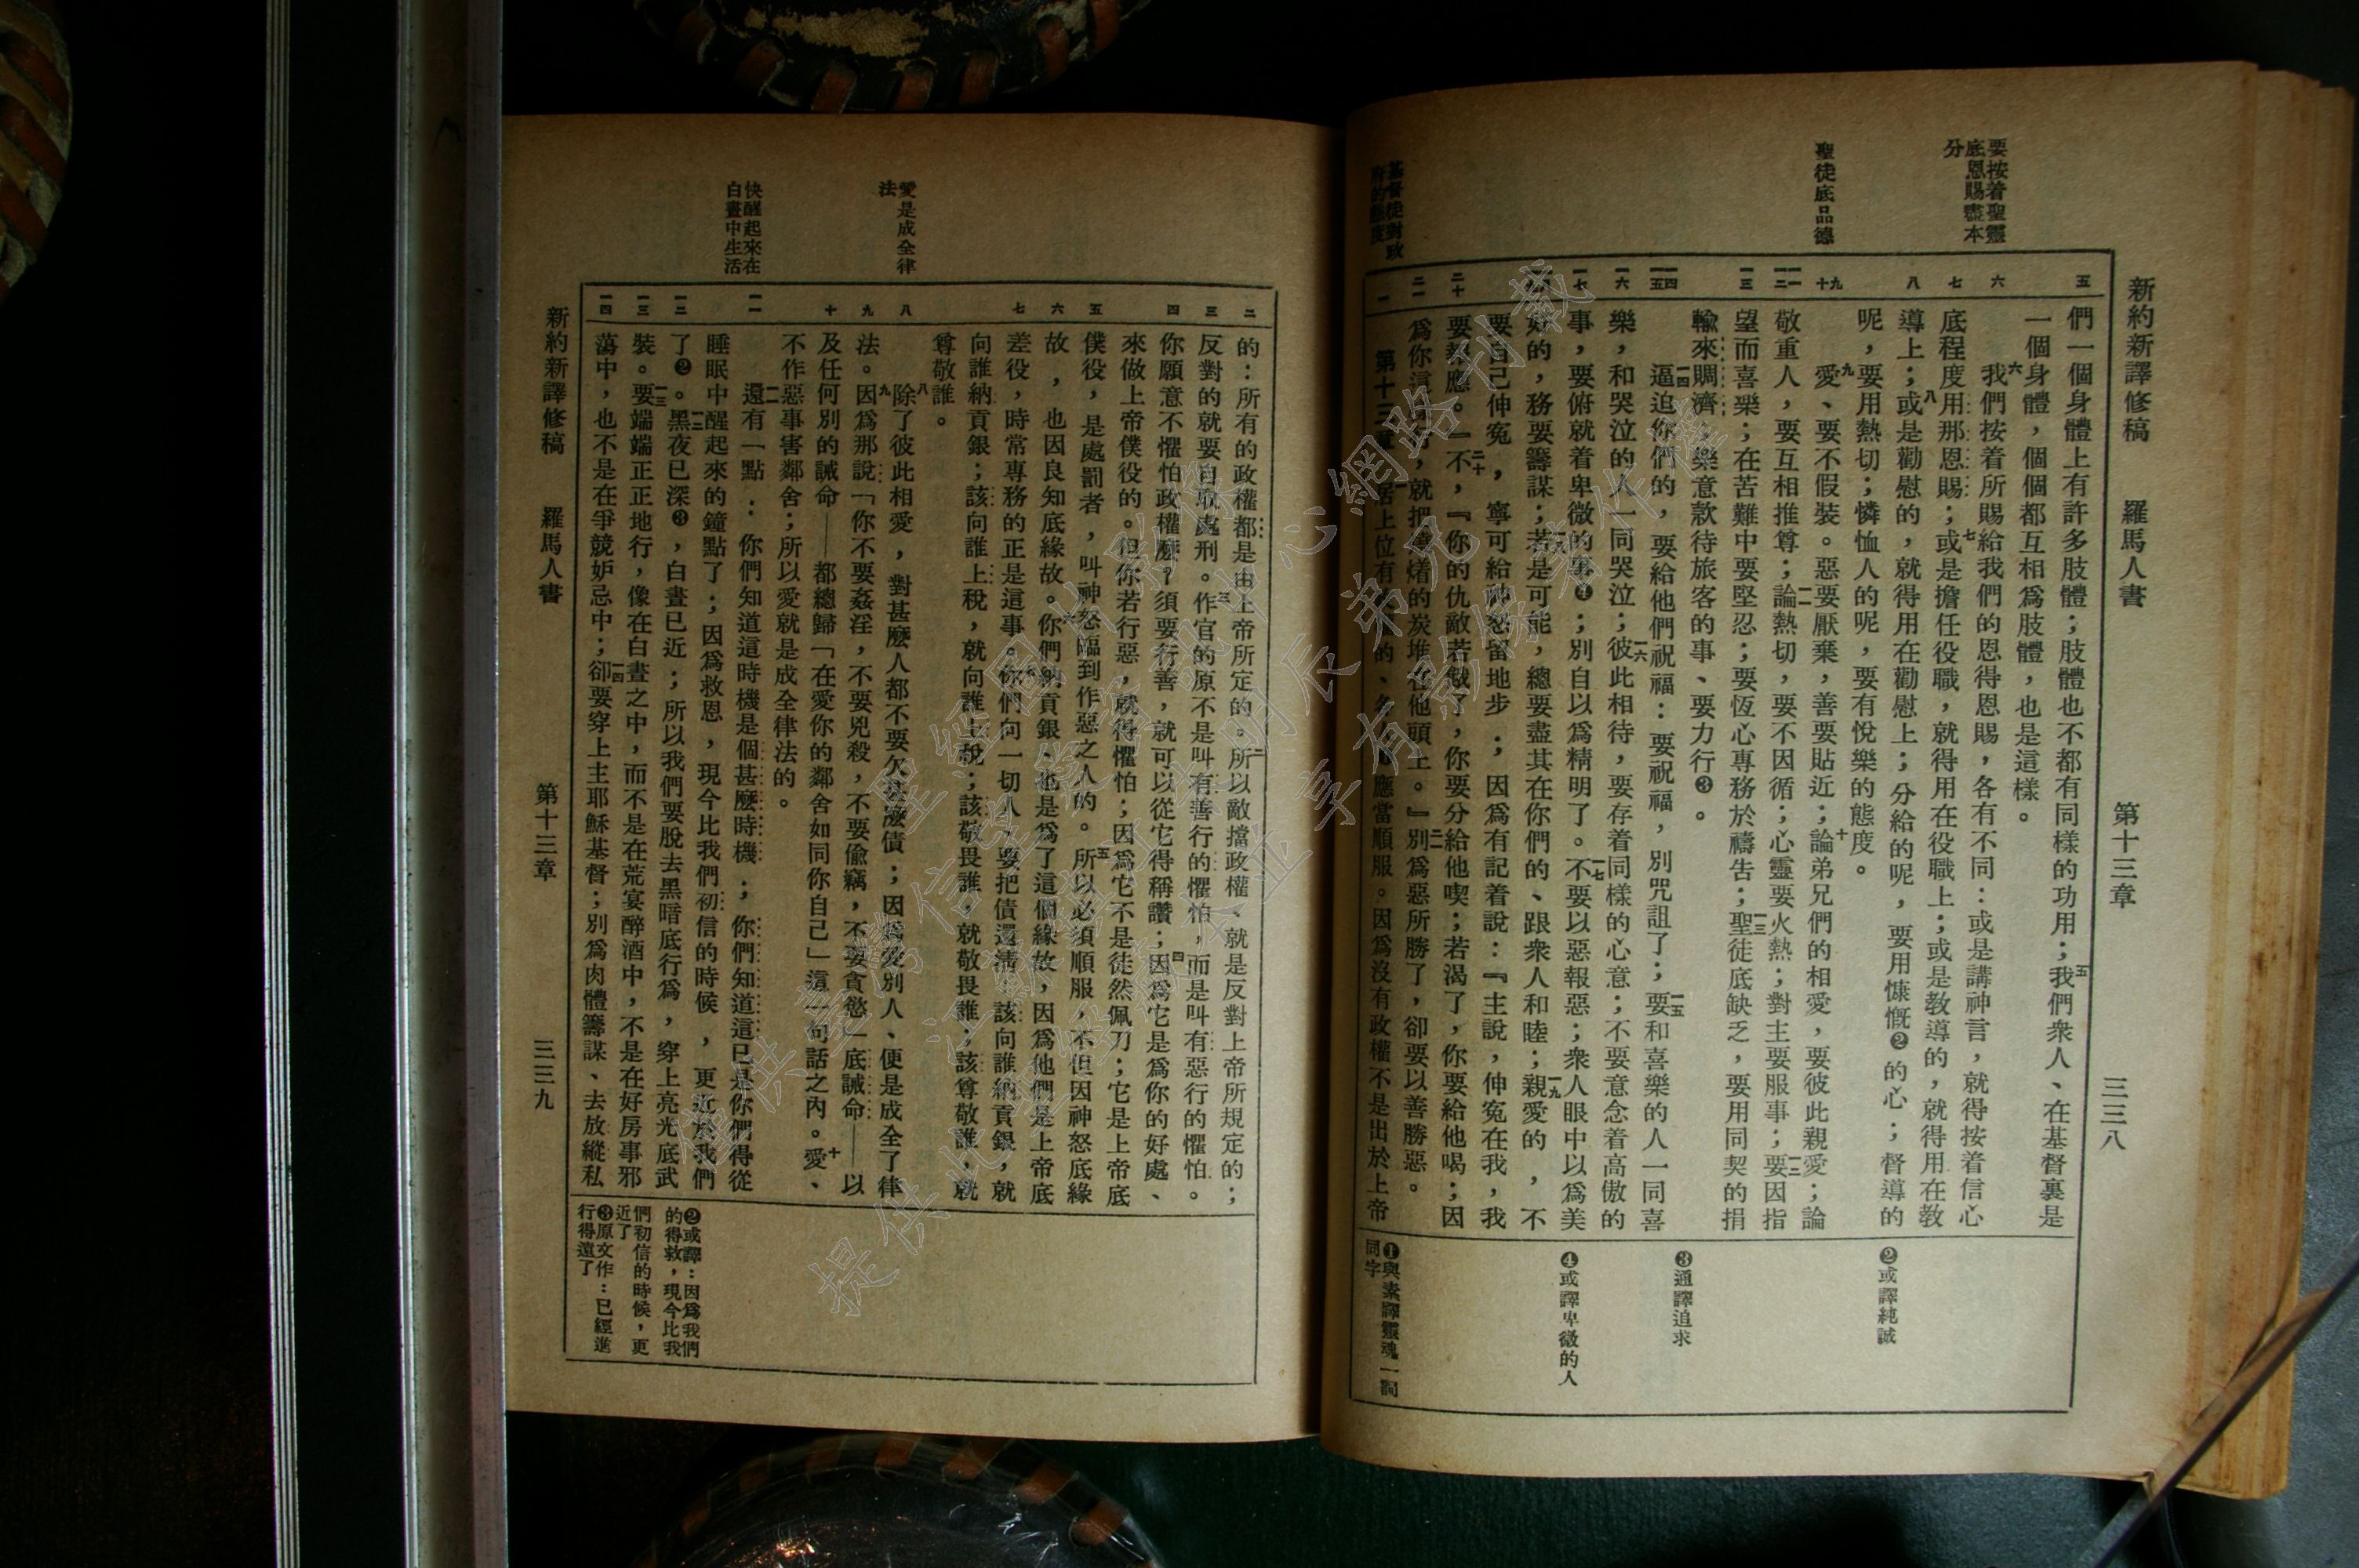 新約新譯修稿　羅馬人書　第十三章　三三八
要按着聖靈
底恩賜盡本
分
聖徒底品德
基督徒對政
府的態度
們一個身體上有許多肢體；肢體也不都有同樣的功用；五我們衆人、在基督裏是
一個身體，個個都互相爲肢體，也是這樣。
六我們按着所賜給我們的恩得恩賜，各有不同：或是講神言，就得按着信心
底程度用那恩賜；七或是擔任役職，就得用在役職上；或是教導的，就得用在教
導上；八或是勸慰的，就得用在勸慰上；分給的呢，要用慷慨❷的心；督導的
呢，要用熱切；憐恤人的呢，要有悅樂的態度。
九愛、要不假裝。惡要厭棄，善要貼近；十論弟兄們的相愛，要彼此親愛；論
敬重人，要互相推尊；一一論熱切，要不因循；心靈要火熱；對主要服事；一二要因指
望而喜樂；在苦難中要堅忍；要恆心專務於禱告；一三聖徒底缺乏，要用同契的捐
輸來賙濟；樂意款待旅客的事、要力行❸。
一四逼迫你們的，要給他們祝福：要祝福，別咒詛了；一五要和喜樂的人一同喜
樂，和哭泣的人一同哭泣；一六彼此相待，要存着同樣的心意；不要意念着高傲的
事，要俯就着卑微的事❹；別自以爲精明了。一七不要以惡報惡；衆人眼中以爲美
好的，務要籌謀；一八若是可能，總要盡其在你們的、跟衆人和睦；一九親愛的，不
要自己伸冤，寧可給神怒留地步；因爲有記着說：『主說，伸冤在我，我
要報應。』二十不，『你的仇敵若餓了，你要分給他喫；若渴了，你要給他喝；因
爲你這，就把燒㷮的炭堆在他頭上。』二一別爲惡所勝了，卻要以善勝惡。
第十三章　居上位有的、各應當順服。因爲沒有政權不是出於上帝
❷或譯純誠
❸通譯追求
❹或譯卑微的人
❶與素譯靈魂一詞
同字
愛是成全律
法
快醒起來在
白晝中生活
的：所有的政權都是由上帝所定的。二所以敵擋政權、就是反對上帝所規定的；
反對的就要自取處刑。三作官的原不是叫有善行的懼怕，而是叫有惡行的懼怕。
你願意不懼怕政權麼？須要行善，就可以從它得稱讚；四因爲它是爲你的好處、
來做上帝僕役的。但你若行惡，就得懼怕；因爲它不是徒然佩刀；它是上帝底
僕役，是處罰者，叫神怒臨到作惡之人的。五所以必須順服，不但因神怒底緣
故，也因良知底緣故。六你們納貢銀、也是爲了這個緣故，因爲他們是上帝底
差役，時常專務的正是這事。七你們向一切人、要把債還清：該向誰納貢銀，就
向誰納貢銀；該向誰上稅，就向誰上稅；該敬畏誰，就敬畏誰；該尊敬誰，就
尊敬誰。
八除了彼此相愛，對甚麼人都不要欠甚麼債；因爲愛別人、便是成全了律
法。九因爲那說「你不要姦淫，不要兇殺，不要偷竊，不要貪慾」底誡命——以
及任何別的誡命——都總歸「在愛你的鄰舍如同你自己」這一句話之內。十愛、
不作惡事害鄰舍；所以愛就是成全律法的。
一一還有一點：你們知道這時機是個甚麼時機；你們知道這已是你們得從
睡眠中醒起來的鐘點了；因爲救恩，現今比我們初信的時候，更近於我們
了❷。一二黑夜已深❸，白晝已近；所以我們要脫去黑暗底行爲，穿上亮光底武
裝。一三要端端正正地行，像在白晝之中，而不是在荒宴醉酒中，不是在好房事邪
蕩中，也不是在爭競妒忌中；一四卻要穿上主耶穌基督；別爲肉體籌謀、去放縱私
❷或譯：因爲我們
的得救，現今比我
們初信的時候，更
近了
❸原文作：已經進
行得遠了
新約新譯修稿　羅馬人書　第十三章　三三九